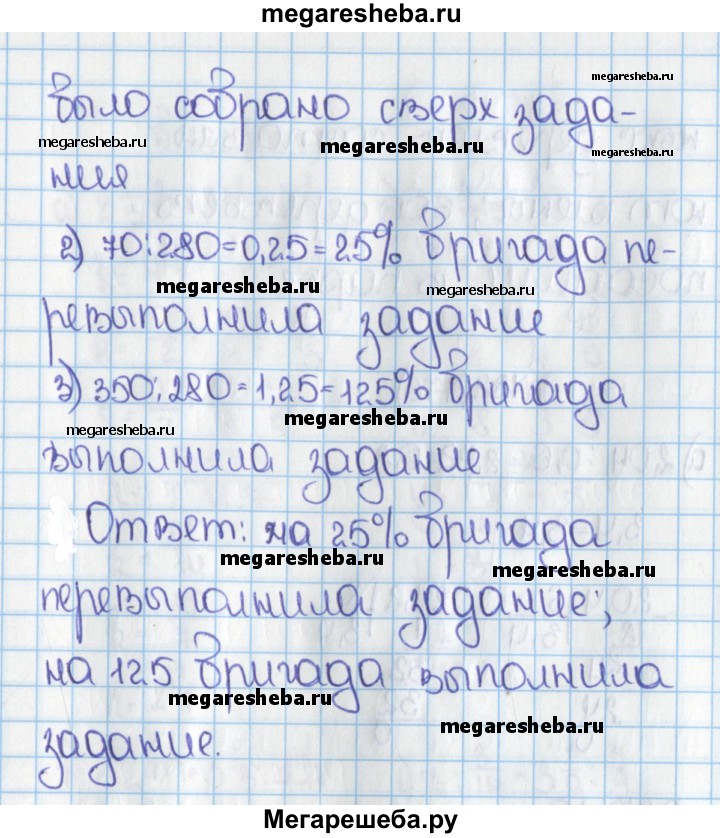 megaresheba.ru
megaresheba.ru
было собрано сверх зада-
megaresheba.ru
megaresheba.ru
megaresheba.ru
ния
2) 70:280=0,25=25% бригада пе-
megaresheba.ru
megaresheba.ru
ревыполнила задание
megaresheba.ru
3) 350:280=1,25=125% бригада
megaresheba.ru
megaresheba.ru
выполнила задание
Ответ: на 25% бригада
megaresheba.ru
megaresheba.ru
перевыполнила задание;
на 125 бригада выполнила
megaresheba.ru
megaresheba.ru
задание.
Мегарешеба.ру